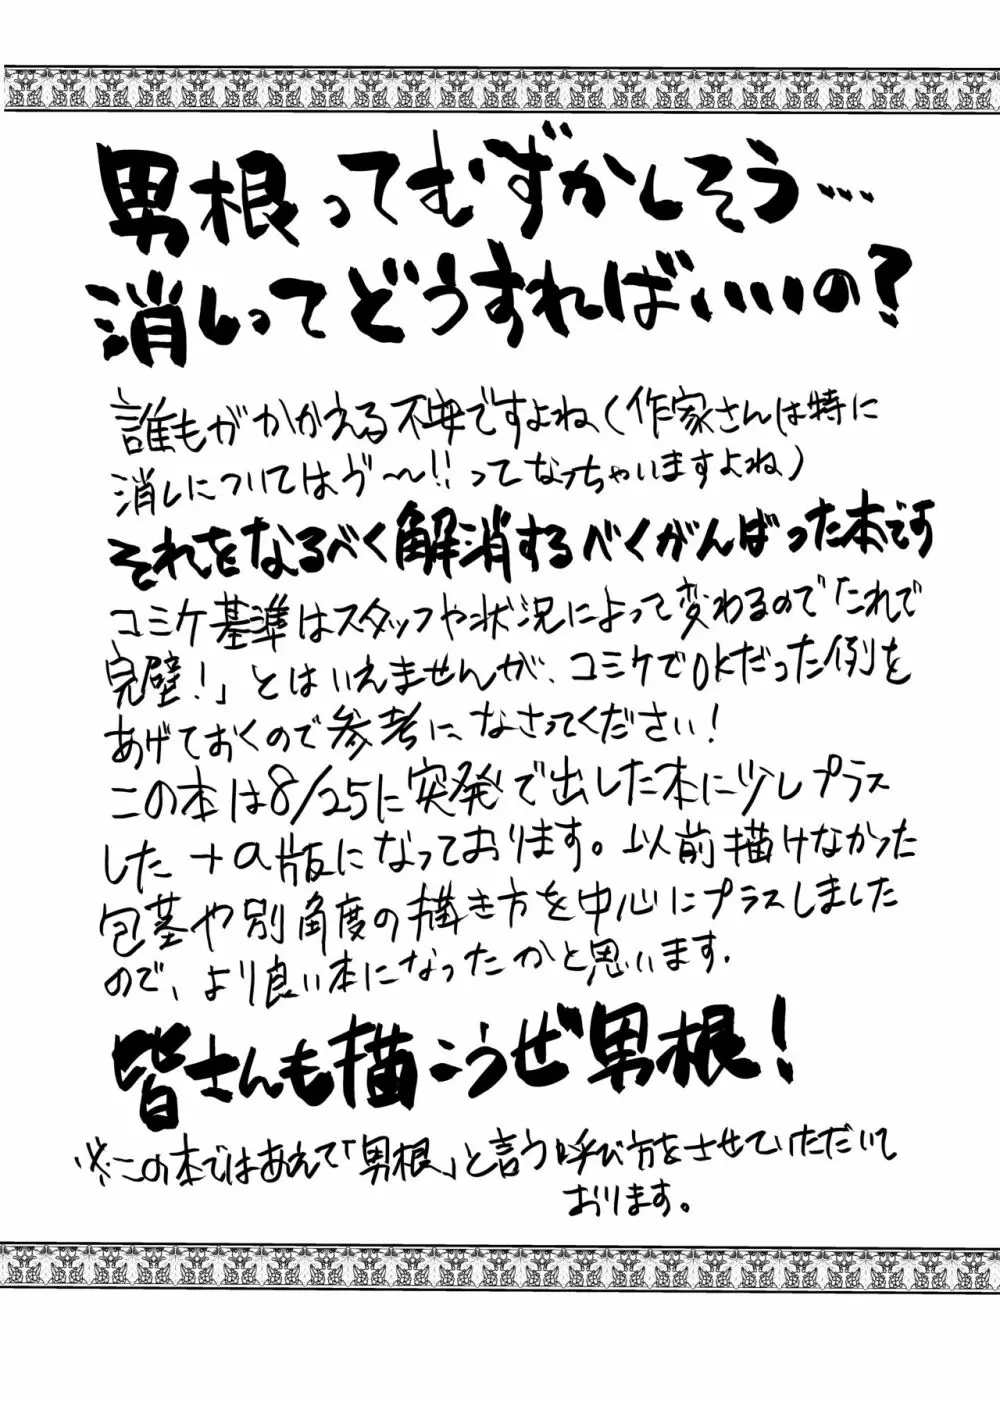 男根ってむずかしそう…
消しってどうすればいいの?
誰もがかかえる不安ですよね(作家さんは特に
消しについてはゔ〜!!ってなっちゃいますよね)
それをなるべく解消するべくがんばった本です
コミケ基準はスタッフや状況によって変わるので「これで
完璧!」とはいえませんが、コミケでOKだった例を
あげておくので参考になさってください!
この本は8/25に突発で出した本に少しプラス
した+α版になっております。以前描けなかった
包茎や別角度の描き方を中心にプラスしました
ので、より良い本になったかと思います.
皆さんも描こうぜ男根!
※この本ではあえて「男根」と言う呼び方をさせていただいて
おります。